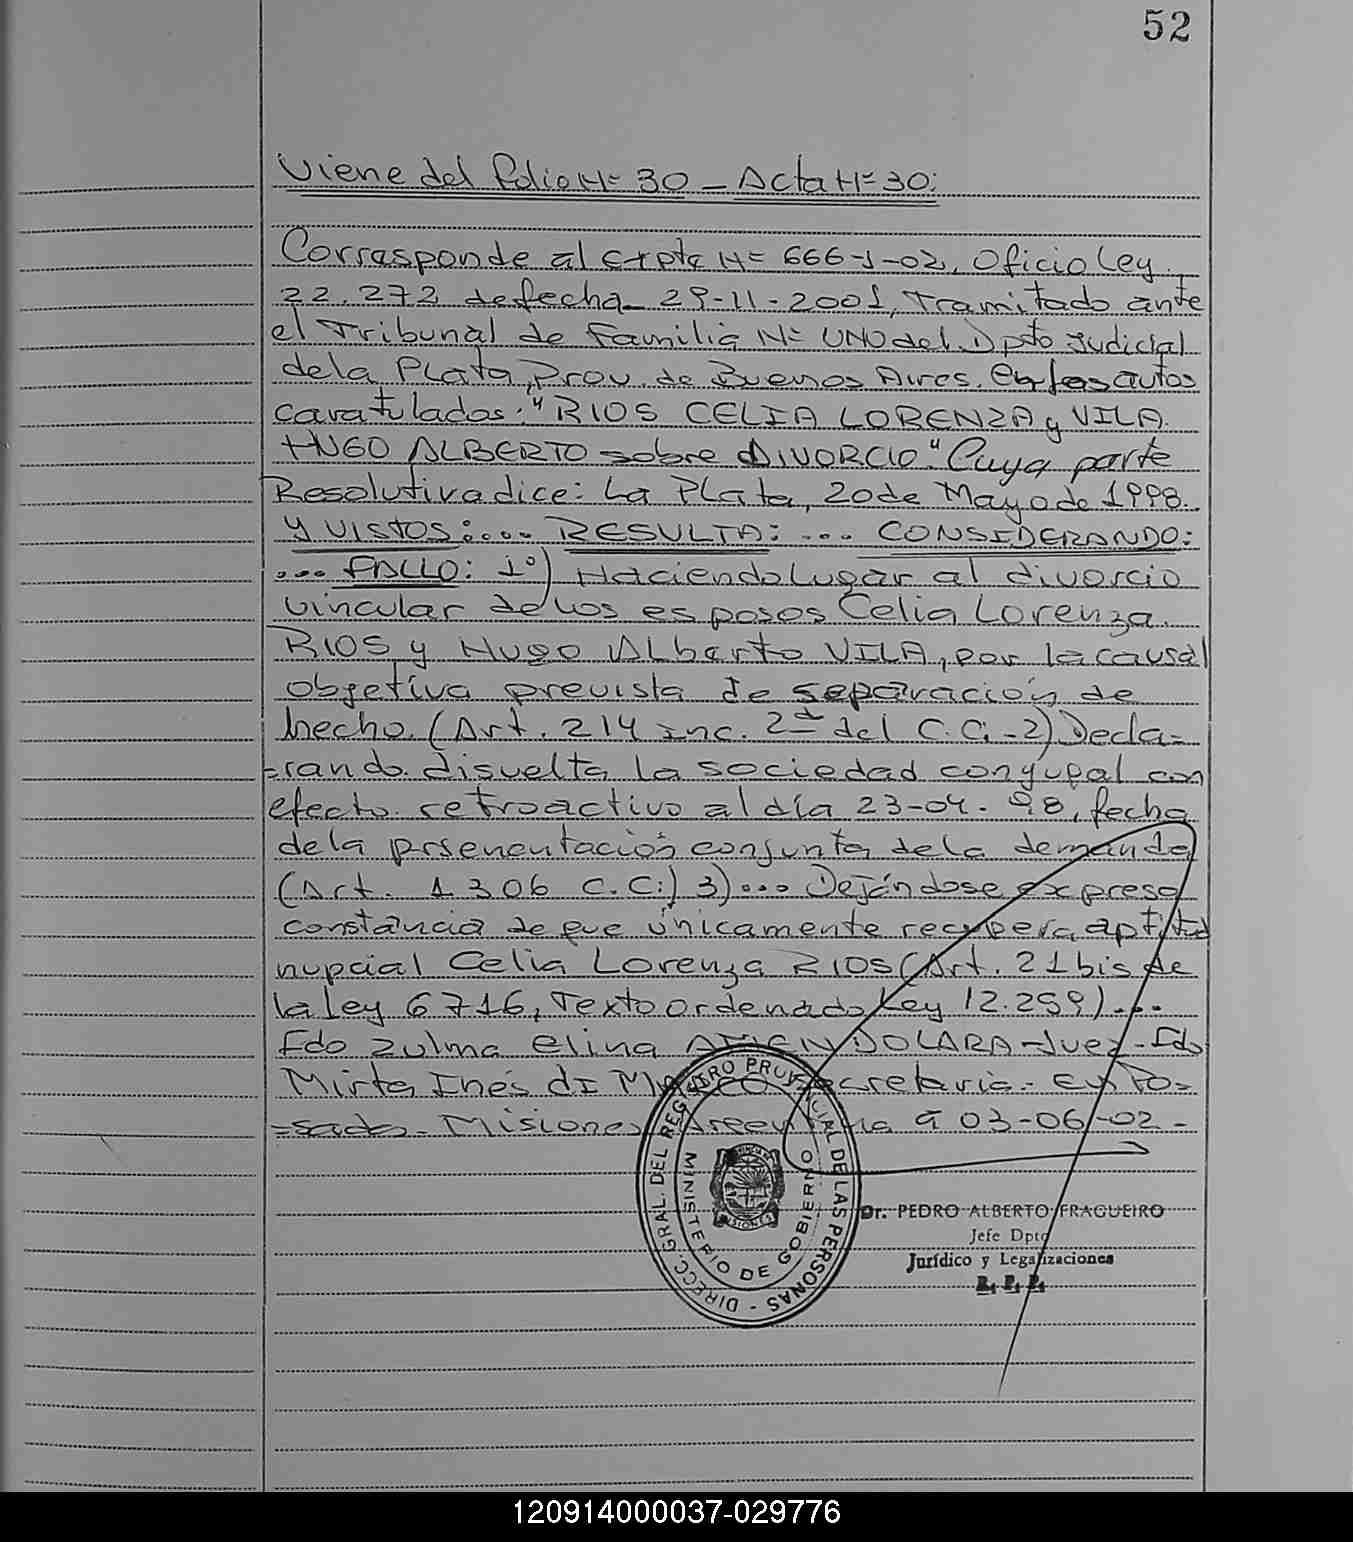 52
Viene del folio Nº 30 - Acta Nº 30:
Corresponde al Expte Nº 666-J-02, Oficio Ley
22.272 de fecha 29-11-2001, Tramitado ante
el Tribunal de Familia Nº UNO del Dpto Judicial
de la Plata, Prov. de Buenos Aires. En los autos
caratulados: "RIOS CELIA LORENZA y VILA
HUGO ALBERTO sobre DIVORCIO." Cuya parte
Resolutiva dice: La Plata, 20 de Mayo de 1998.
Y VISTOS:.... RESULTA: ... CONSIDERANDO:
... FALLO: 1º) Haciendo Lugar al divorcio
vincular de los esposos Celia Lorenza
RIOS y Hugo Alberto VILA, por la causal
objetiva prevista de separación de
hecho (Art. 214 inc. 2º del C.C.-2) Decla=
=rando disuelta la sociedad conyugal con
efecto retroactivo al día 23-04-98, fecha
de la prsenentación conjunta de la demanda
(Art. 1306 C.C.) 3)... Dejándose expresa
constancia de que únicamente recupera aptitud
nupcial Celia Lorenza RIOS (Art. 21 bis de
la Ley 6716, Texto ordenado Ley 12.259)...
Fdo Zulma Elina AMENDOLARA-Juez-Fdo
Mirta Inés di M Secretaria.- En Po=
=sadas Misiones Argentina a 03-06-02.-
DIRECC. GRAL. DEL REGISTRO PROVINCIAL DE LAS PERSONAS -
MINISTERIO DE GOBIERNO
MISIONES
Dr. PEDRO ALBERTO FRAGUEIRO
Jefe Dpto
Jurídico y Legalizaciones
R. P. P.
120914000037-029776